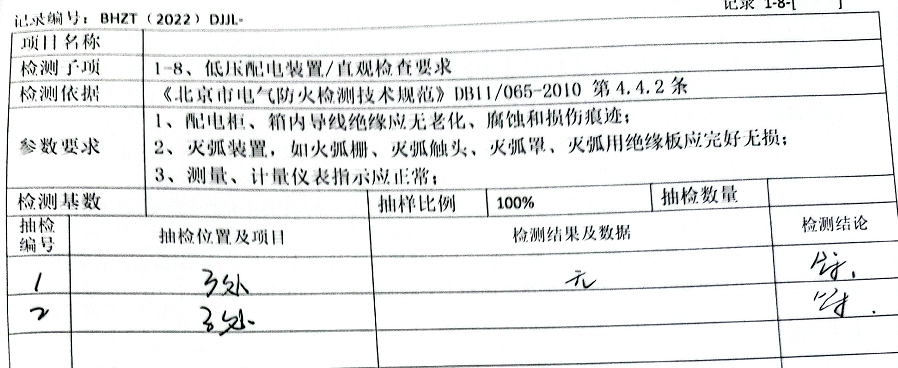 记录编号：BHZT（2022）DJJL-
记录 1-8-[ ]
项目名称
检测子项 1-8、低压配电装置/直观检查要求
检测依据 《北京市电气防火检测技术规范》DB11/065-2010 第 4.4.2 条
参数要求
1、配电柜、箱内导线绝缘应无老化、腐蚀和损伤痕迹；
2、灭弧装置，如灭弧栅、灭弧触头、灭弧罩、灭弧用绝缘板应完好无损；
3、测量、计量仪表指示应正常；
检测基数 抽样比例 100% 抽检数量
抽检编号 抽检位置及项目 检测结果及数据 检测结论
1 3处 无
2 3处